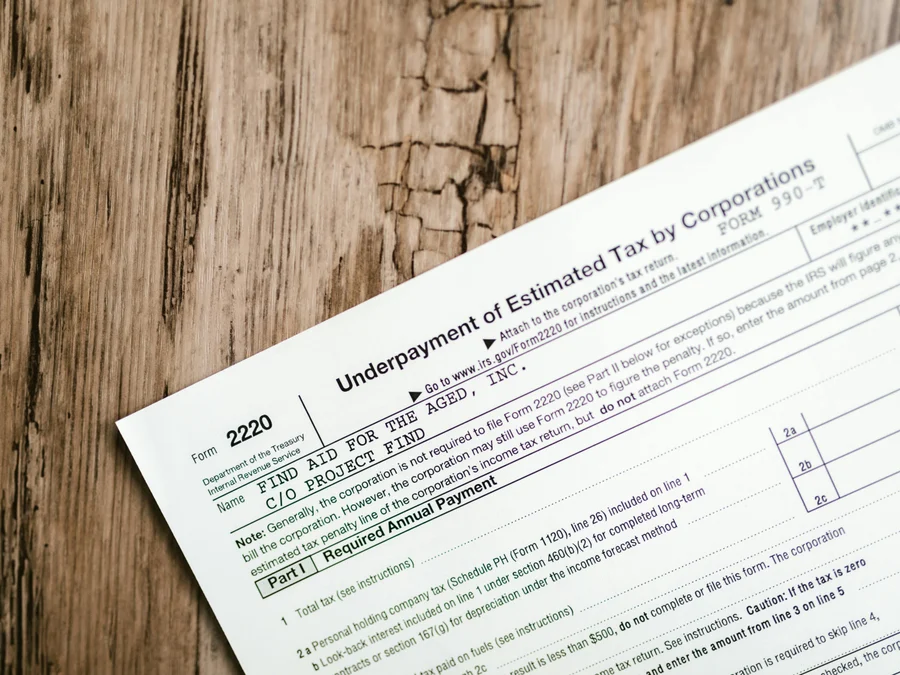 Form 2220
Department of the Treasury
Internal Revenue Service
Underpayment of Estimated Tax by Corporations
▶ Attach to the corporation's tax return.
FORM 990-T
▶ Go to www.irs.gov/Form2220 for instructions and the latest information.
Name
FIND AID FOR THE AGED, INC.
C/O PROJECT FIND
Employer
**-**
Note: Generally, the corporation is not required to file Form 2220 (see Part II below for exceptions) because the IRS will figure any
bill the corporation. However, the corporation may still use Form 2220 to figure the penalty. If so, enter the amount from page 2,
estimated tax penalty line of the corporation's income tax return, but do not attach Form 2220.
Part I Required Annual Payment
1 Total tax (see instructions)
2 a Personal holding company tax (Schedule PH (Form 1120), line 26) included on line 1
2a
b Look-back interest included on line 1 under section 460(b)(2) for completed long-term
contracts or section 167(g) for depreciation under the income forecast method
2b
tax paid on fuels (see instructions)
2c
2c
result is less than $500, do not complete or file this form. The corporation
income tax return. See instructions. Caution: If the tax is zero
and enter the amount from line 3 on line 5
is required to skip line 4,
checked, the